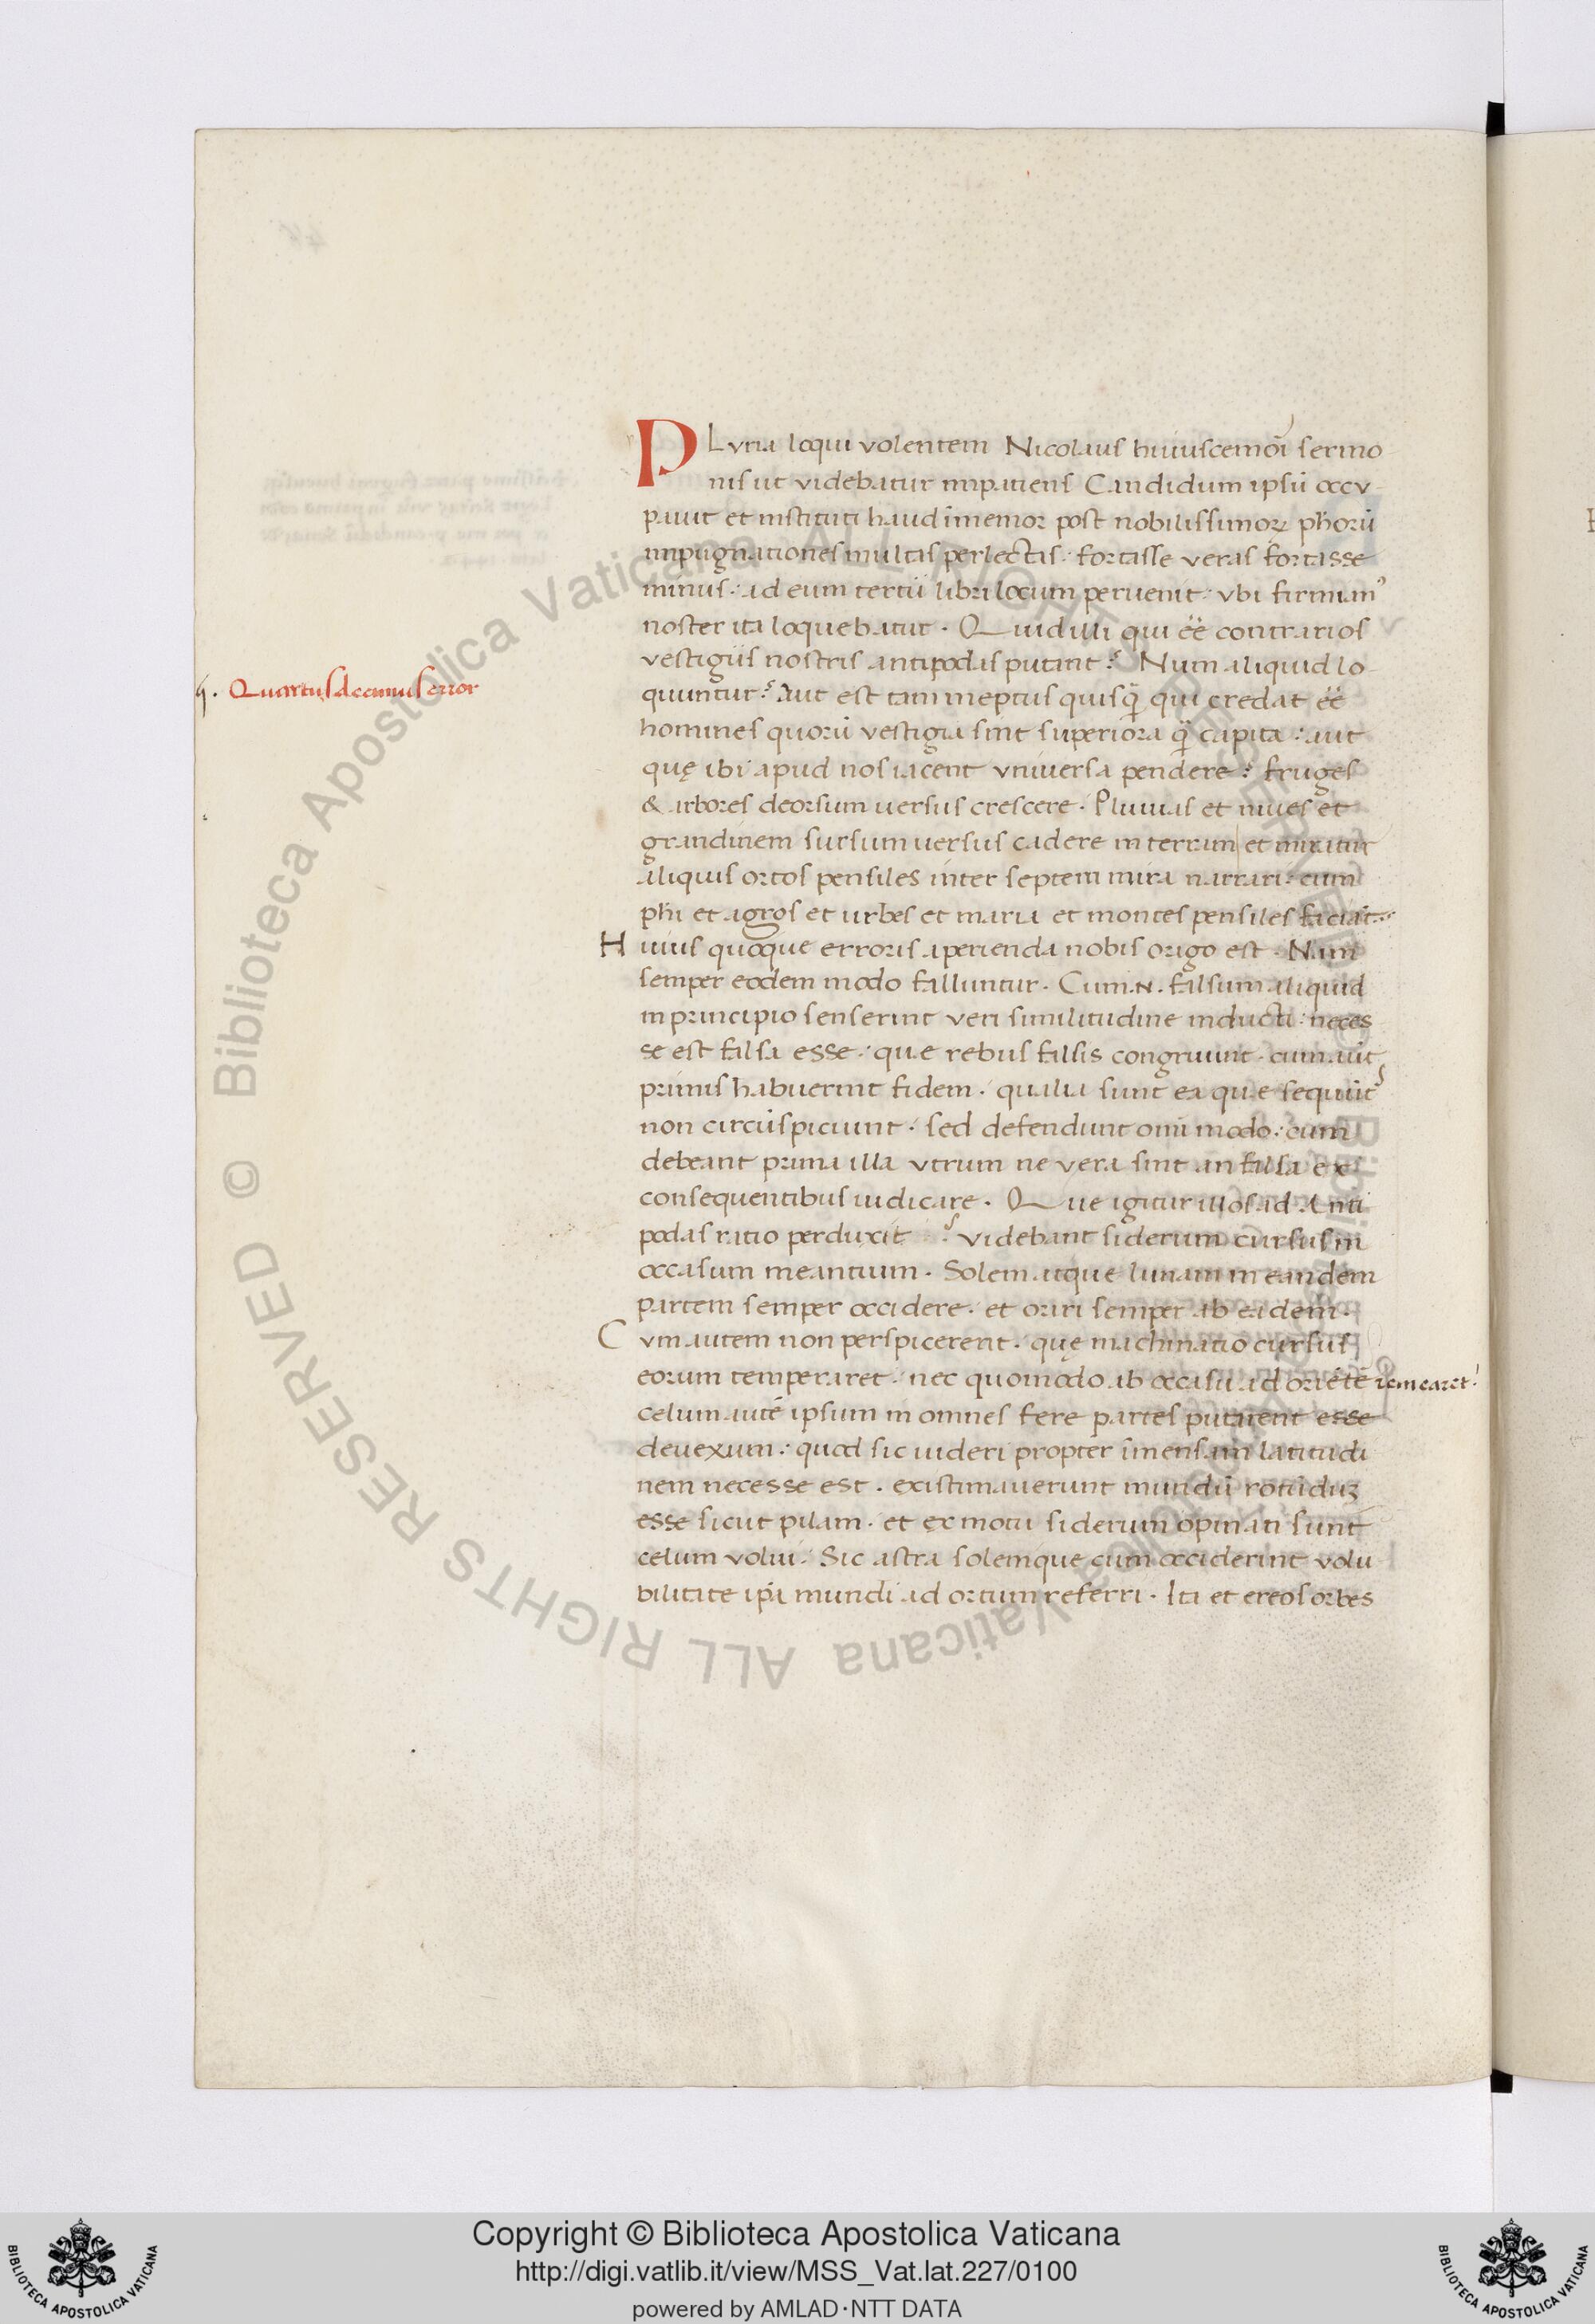 PLvria loqui volentem Nicolaus huiuscemoī sermo
nis ut videbatur impatiens Candidum ipsū occv
pauit et instituti haud īmemor post nobilissimorꝝ phōrū
impugnationes multas perlectas: fortasse veras fortasse
minus: ad eum tertii libri locum peruenit: vbi firmianꝰ
noster ita loquebatur. Quid illi qui eē contrarios
vestigiis nostris antipodas putant? Num aliquid lo
quuntur? Aut est tam ineptus quisq̄ qui credat eē
homines quorū vestigia sint superiora q̄ capita: aut
quę ibi apud nos iacent vniuersa pendere? fruges
& arbores deorsum uersus crescere. Pluuias et niues et
grandinem sursum uersus cadere in terram et miratur
aliquis ortos pensiles inter septem mira narrari: cum
phi et agros et urbes et maria et montes pensiles faciāt.
Quartusdecimus error
Huius quoque erroris aperienda nobis origo est. Nam
semper eodem modo falluntur. Cum .N. falsum aliquid
in principio senserint veri similitudine inducti: neces
se est falsa esse: quae rebus falsis congruunt. cum aūt
primis habuerint fidem. qualia sunt ea quae sequūt
non circūspiciunt. sed defendunt omī modo: cum
debeant prima illa vtrum ne vera sint an falsa ex
consequentibus iudicare. Que igitur illos ad Anti
podas ratio perduxit? videbant siderum cursus in
occasum meantium. Solem atque lunam in eandem
partem semper occidere. et oriri semper ab eadem.
Cvm autem non perspicerent. quę machinatio cursus
eorum temperaret. nec quomodo ab occasu ad oriētē remearet:
celum autē ipsum in omnes fere partes putarent esse
deuexum: quod sic uideri propter īmensam latitudi
nem necesse est. existimauerunt mundū rotūduꝫ
esse sicut pilam. et ex motu siderum opinati sunt
celum volui. Sic astra solemque cum occiderint volu
bilitate ipī mundi ad ortum referri. Ita et ereos orbes
Copyright © Biblioteca Apostolica Vaticana
http://digi.vatlib.it/view/MSS_Vat.lat.227/0100
powered by AMLAD·NTT DATA
BIBLIOTECA APOSTOLICA VATICANA
BIBLIOTECA APOSTOLICA VATICANA
© Biblioteca Apostolica Vaticana ALL RIGHTS RESERVED © Biblioteca Apostolica Vaticana ALL RIGHTS RESERVED